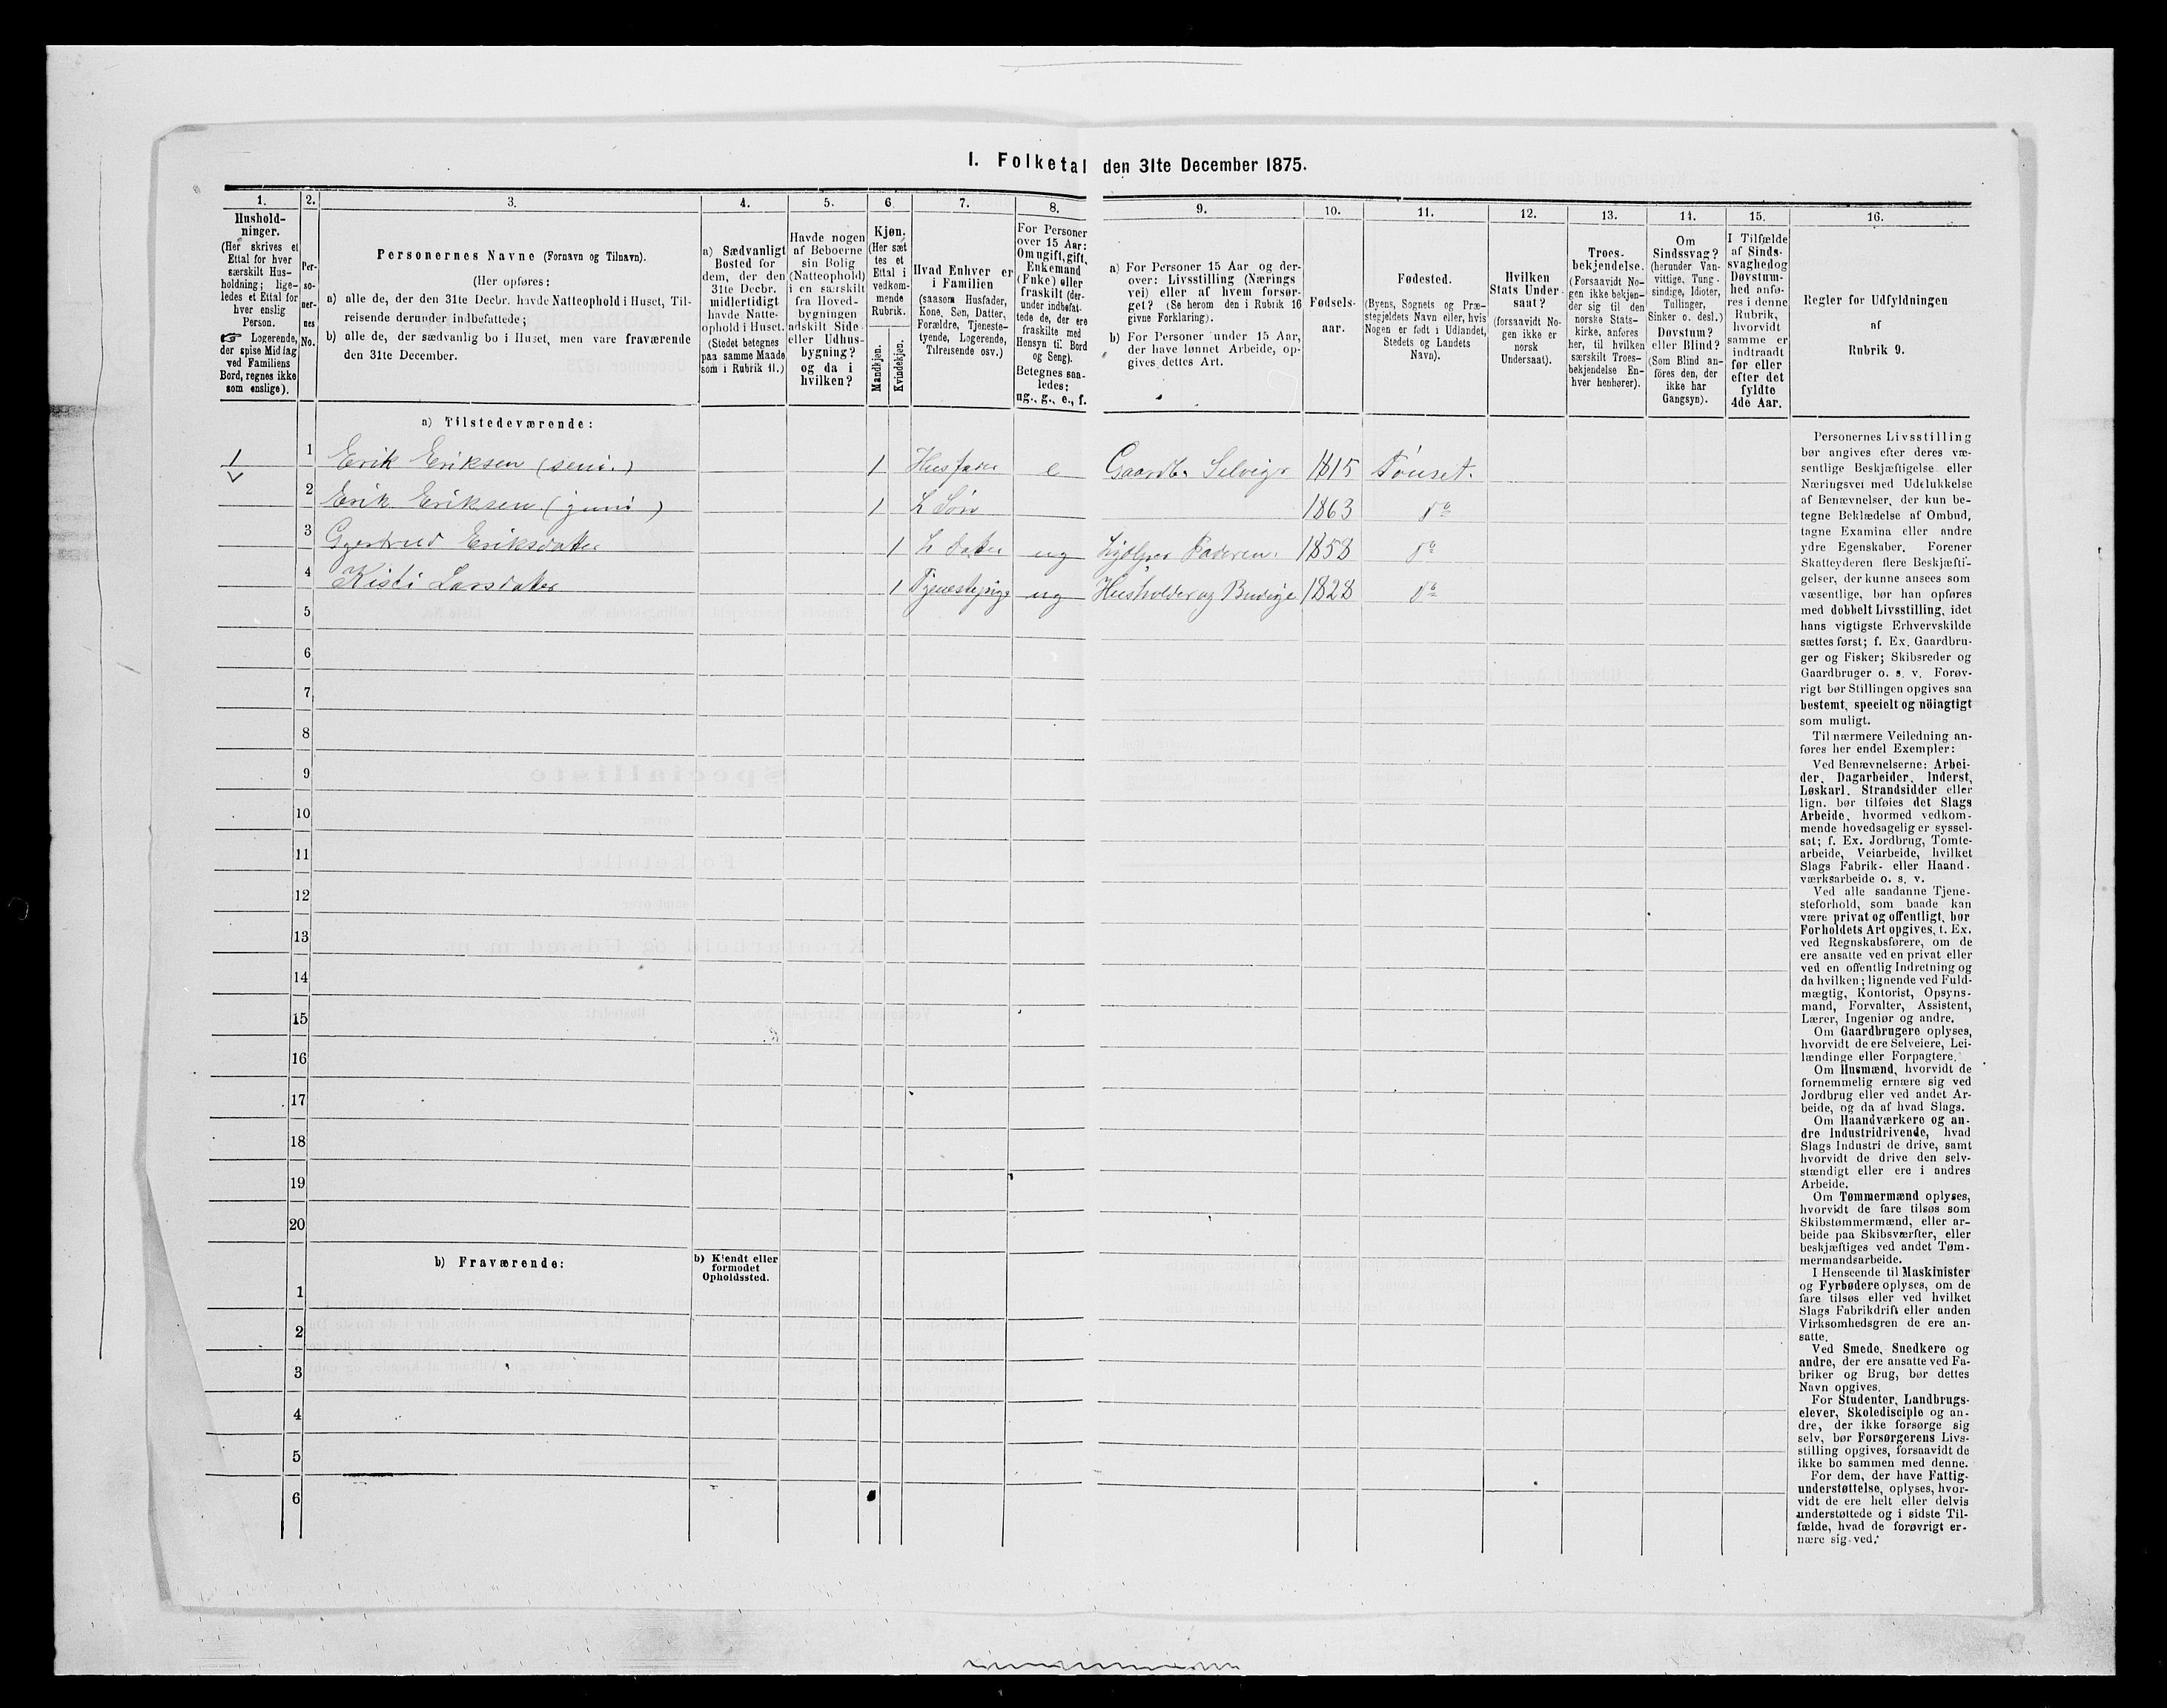 I. Folketal den 31te December 1875.
1.
Hushold-
ninger.
(Her skrives et
Ettal for hver
særskilt Hus-
holdning; lige-
ledes et Ettal for
hver enslig
Person.
☞ Logerende,
der spise Middag
ved Familiens
Bord, regnes ikke
som enslige).
2.
Per-
so-
ner-
nes
No.
3.
Personernes Navne (Fornavn og Tilnavn).
(Her opføres:
a) alle de, der den 31te Decbr. havde Natteophold i Huset, Til-
reisende derunder indbefattede;
b) alle de, der sædvanlig bo i Huset, men vare fraværende
den 31te December.
4.
a) Sædvanligt
Bosted for
dem, der den
31te Decbr.
midlertidigt
havde Natte-
ophold i Huset.
(Stedet betegnes
paa samme Maade
som i Rubrik 11.)
5.
Havde nogen
af Beboerne
sin Bolig
(Natteophold)
i en særskilt
fra Hoved-
bygningen
adskilt Side-
eller Udhus-
bygning?
og da i
hvilken?
6.
Kjøn.
(Her sæt
tes et
Ettal i
vedkom-
mende
Rubrik.
Mandkjøn.
Kvindekjøn.
7.
Hvad Enhver er
i Familien
(saasom Husfader,
Kone, Søn, Datter,
Forældre, Tjeneste-
tyende, Logerende,
Tilreisende osv.)
8.
For Personer
over 15 Aar:
Om ugift, gift,
Enkemand
(Enke) eller
fraskilt (der-
under indbefat-
tede de, der ere
fraskilte med
Hensyn til Bord
og Seng).
Betegnes saa-
ledes:
ug., g., e., f.
9.
a) For Personer 15 Aar og der-
over: Livsstilling (Nærings
vei) eller af hvem forsør-
get? (Se herom den i Rubrik 16
givne Forklaring).
b) For Personer under 15 Aar,
der have lønnet Arbeide, op-
gives dettes Art.
10.
Fødsels-
aar.
11.
Fødested.
(Byens, Sognets og Præ-
stegjeldets Navn eller, hvis
Nogen er født i Udlandet,
Stedets og Landets
Navn).
12.
Hvilken
Stats Under-
saat?
(forsaavidt No-
gen ikke er
norsk
Undersaat).
13.
Troes-
bekjendelse.
(Forsaavidt No-
gen ikke bekjen-
der sig til den
norske Stats-
kirke, anføres
her, til hvilken
særskilt Troes-
bekjendelse En-
hver henhører).
14.
Om
Sindssvag?
(herunder Van-
vittige, Tung-
sindige, Idioter,
Tullinger,
Sinker o. desl.)
Døvstum?
eller Blind?
(Som Blind an-
føres den, der
ikke har
Gangsyn).
15.
I Tilfælde
af Sinds-
svaghed og
Døvstum-
hed anfø-
res i denne
Rubrik,
hvorvidt
samme er
indtraadt
før eller
efter det
fyldte
4de Aar.
16.
Regler for Udfyldningen
af
Rubrik 9.
a) Tilstedeværende:
1 1 Erik Eriksen (seni.) 1 Husfader e Gaardb. Selveier 1815 Tønset.
2 Erik Eriksen (juni) 1 Søn 1863 do
3 Gjertrud Eriksdatter 1 datter ug hjælper Faderen. 1858 do
4 Kisti Larsdatter 1 Tjenestepige ug Husholder og Budeje 1828 do
5
6
7
8
9
10
11
12
13
14
15
16
17
18
19
20
b) Fraværende:
b) Kjendt eller
formodet
Opholdssted.
1
2
3
4
5
6
Personernes Livsstilling
bør angives efter deres væ-
sentlige Beskjæftigelse eller
Næringsvei med Udelukkelse
af Benævnelser, der kun be-
tegne Beklædelse af Ombud,
tagne Examina eller andre
ydre Egenskaber. Forener
Skatteyderen flere Beskjæfti-
gelser, der kunne ansees som
væsentlige, bør han opføres
med dobbelt Livsstilling, idet
hans vigtigste Erhvervskilde
sættes først; f. Ex. Gaardbru-
ger og Fisker; Skibsreder og
Gaardbruger o. s. v. Forøv-
rigt bør Stillingen opgives saa
bestemt, specielt og nöiagtigt
som muligt.
Til nærmere Veiledning an-
føres her endel Exempler:
Ved Benævnelserne: Arbei-
der, Dagarbeider, Inderst,
Løskarl, Strandsidder eller
lign. bør tilføies det Slags
Arbeide, hvormed vedkom-
mende hovedsagelig er syssel-
sat; f. Ex. Jordbrug, Tomte-
arbeide, Veiarbeide, hvilket
Slags Fabrik- eller Haand-
værksarbeide o. s. v.
Ved alle saadanne Tjene-
steforhold, som baade kan
være privat og offentligt, bør
Forholdets Art opgives, f. Ex.
ved Regnskabsførere, om de
ere ansatte ved en privat eller
ved en offentlig Indretning og
da hvilken; lignende ved Fuld-
mægtig, Kontorist, Opsyns-
mand, Forvalter, Assistent,
Lærer, Ingeniør og andre.
Om Gaardbrugere oplyses,
hvorvidt de ere Selveiere, Lei-
lændinge eller Forpagtere.
Om Husmænd, hvorvidt de
fornemmelig ernære sig ved
Jordbrug eller ved andet Ar-
beide, og da af hvad Slags.
Om Haandværkere og an-
dre Industridrivende, hvad
Slags Industri de drive, samt
hvorvidt de drive den selv-
stændigt eller ere i andres
Arbeide.
Om Tømmermænd oplyses,
hvorvidt de fare tilsøs som
Skibstømmermænd, eller ar-
beide paa Skibsværfter, eller
beskjæftiges ved andet Tøm-
mermandsarbeide.
I Henseende til Maskinister
og Fyrbødere oplyses, om de
fare tilsøs eller ved hvilket
Slags Fabrikdrift eller anden
Virksomhedsgren de ere an-
satte.
Ved Smede, Snedkere og
andre, der ere ansatte ved Fa-
briker og Brug, bør dettes
Navn opgives.
For Studenter, Landbrugs-
elever, Skoledisciple og an-
dre, der ikke forsørge sig
selv, bør Forsørgerens Livs-
stilling opgives, forsaavidt de
ikke bo sammen med denne.
For dem, der have Fattig-
understøttelse, oplyses, hvor-
vidt de ere helt eller delvis
understøttede og i sidste Til-
fælde, hvad de forøvrigt er-
nære sig ved.